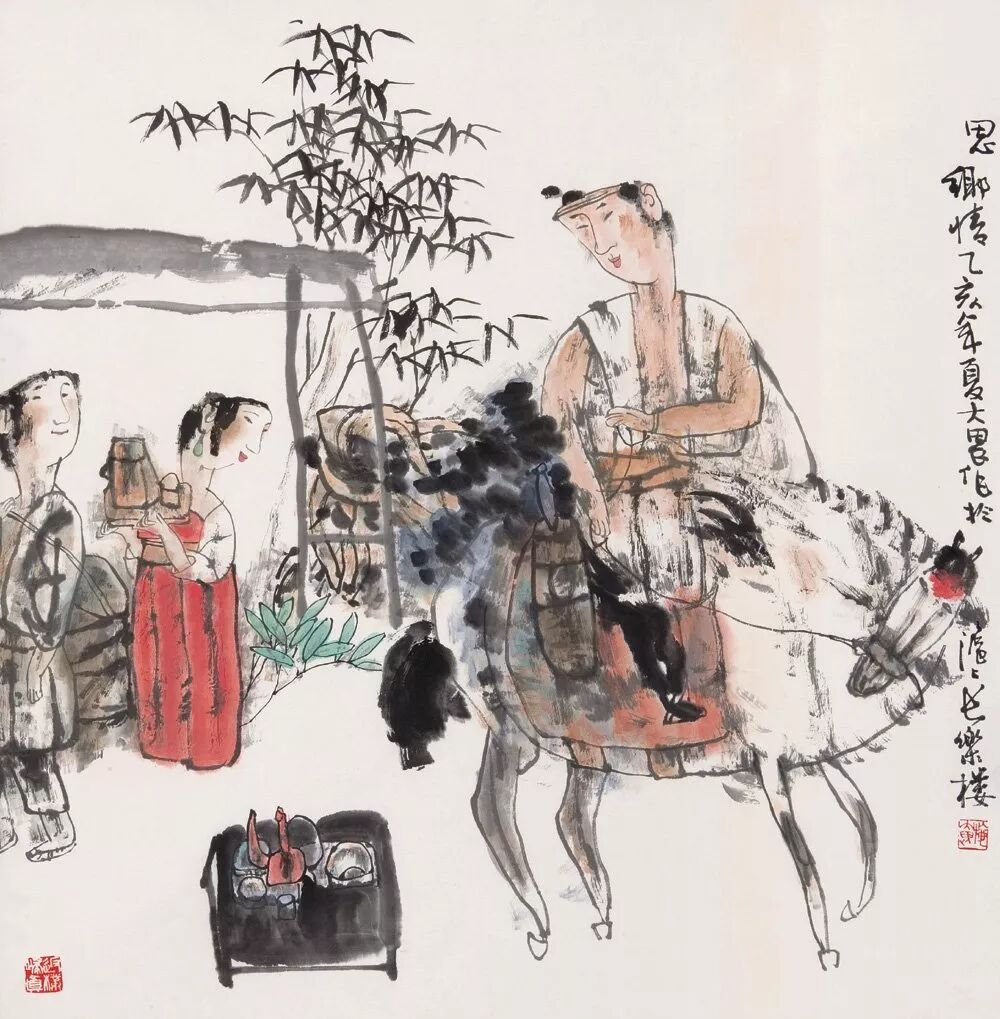 思鄉情乙亥年夏大畏作於
滬上长樂楼